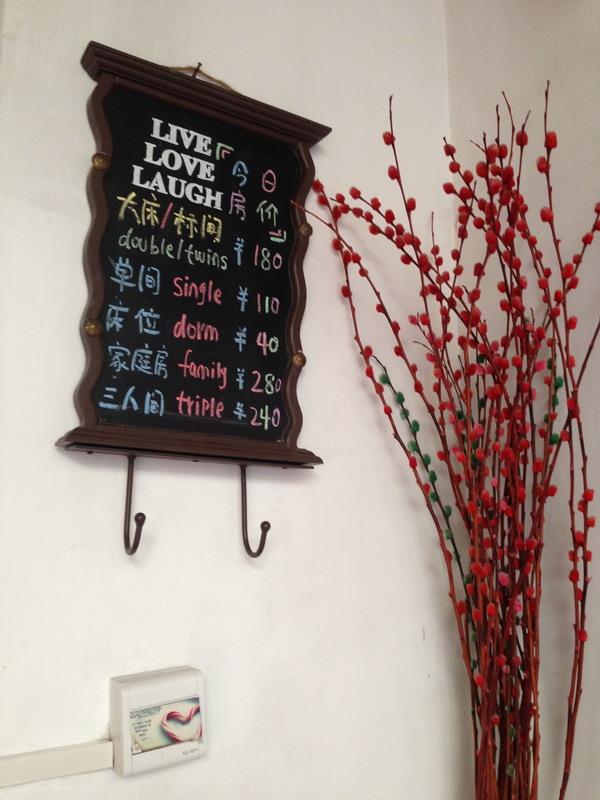 LIVE
LOVE
LAUGH
今日
房价
大床/标间
double/twins ¥180
单间 single ¥110
床位 dorm ¥40
家庭房 family ¥280
三人间 triple ¥240